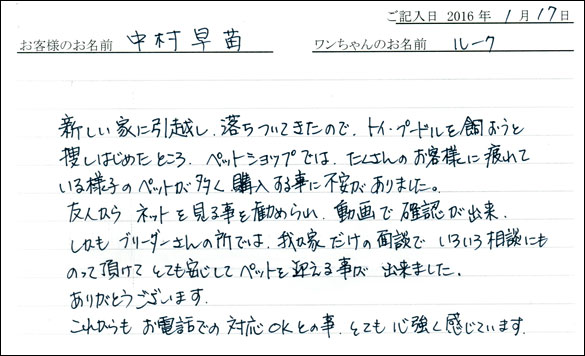 ご記入日 2016年 1月17日
お客様のお名前 中村早苗 ワンちゃんのお名前 ルーク
新しい家に引越し、落ちついてきたので、トイ・プードルを飼おうと
捜しはじめたところ、ペットショップでは、たくさんのお客様に疲れて
いる様子のペットが多く購入する事に不安がありました。
友人から ネットを見る事を勧められ、動画で確認が出来、
しかも ブリーダーさんの所では、我が家だけの面談で いろいろ相談にも
のって頂けて とても安心して ペットを迎える事が 出来ました。
ありがとうございます。
これからも お電話での対応OKとの事、とても心強く感じています。